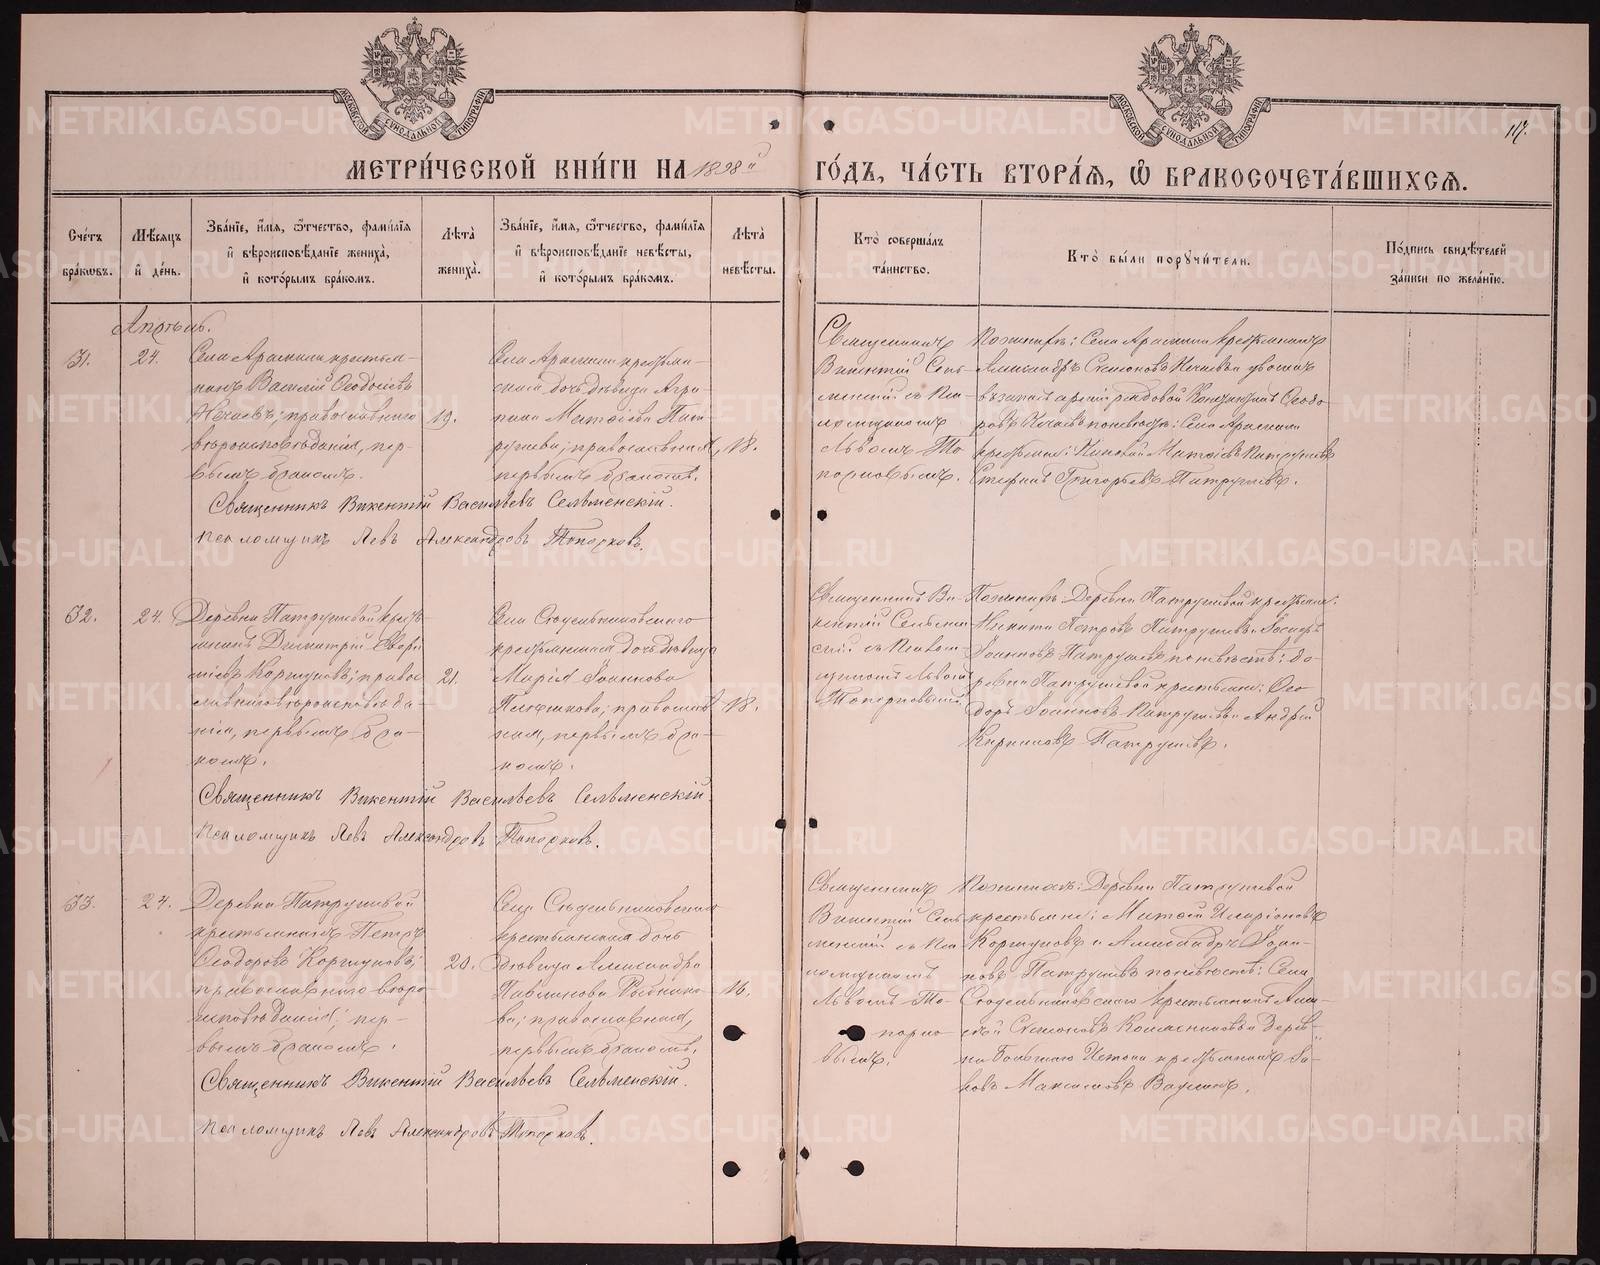 МЕТРИ́ЧЕСКОЙ КНИ́ГИ НА 1898й ГО́ДЪ, ЧА́СТЬ ВТОРА́Я, Ѿ БРАКОСОЧЕТА́ВШИХСЯ.
117.
МОСКОВСКОЙ СѴНОДАЛЬНОЙ ТИПОГРАФІИ
МОСКОВСКОЙ СѴНОДАЛЬНОЙ ТИПОГРАФІИ
Сче́тъ бра́кѡвъ.
Мѣсяцъ и҆ де́нь.
Зва́нїе, и҆́мя, ѻ҆́тчество, фами́лїя
и҆ вѣроисповѣ́данїе жениха̀,
и҆ кото́рымъ бра́комъ.
Лѣ́та жениха̀.
Зва́нїе, и҆́мя, ѻ҆́тчество, фами́лїя
и҆ вѣроисповѣ́данїе невѣ́сты,
и҆ кото́рымъ бра́комъ.
Лѣ́та невѣ́сты.
Кто̀ соверша́лъ та́инство.
Кто̀ бы́ли порꙋчи́тели.
По́дпись свидѣ́телей за́писи по жела́нїю.
Апрѣль.
31.
24.
Села Арамили крестья-
нинъ Василій Ѳеодосіевъ
Нечаевъ; православнаго
вѣроисповѣданія, пер-
вымъ бракомъ.
19.
Села Арамили крестьян-
ская дочь дѣвица Агри-
пина Матѳіева Пат-
рушева; православная,
первымъ бракомъ.
18.
Священникъ
Викентій Сель-
менскій съ Пса-
ломщикомъ
Львомъ То-
порковымъ.
По женихѣ: Села Арамили крестьянинъ
Александръ Симеоновъ Нечаевъ и уволен.
въ запасъ арміи рядовой Ѳеодо-
ровъ Нечаевъ по невѣстѣ: Села Арамили
крестьяне: Матѳіевъ Патрушевъ
Стефанъ Григорьевъ Патрушевъ.
Священникъ Викентій Васильевъ Сельменскій.
Псаломщикъ Левъ Александровъ Топорковъ.
32.
24.
Деревни Патрушевой кресть-
янинъ Димитрій
Коршуновъ; право-
славнаго вѣроисповѣда-
нія, первымъ бра-
комъ.
21.
Села Сысерть
крестьянская дочь дѣвица
Марія Іоаннова
православ-
ная, первымъ бра-
комъ.
18.
Священникъ Ви-
кентій Сельмен-
скій съ Псалом-
щикомъ Львомъ
Топорковымъ
По женихѣ: Деревни Патрушевой крестьяне:
Никита Петровъ Патрушевъ
Іоанновъ Патрушевъ по невѣстѣ: де-
ревни Патрушевой крестьяне: Ѳео-
доръ Іоанновъ Патрушевъ и Андрей
Кириловъ Патрушевъ.
Священникъ Викентій Васильевъ Сельменскій.
Псаломщикъ Левъ Александровъ Топорковъ.
33.
24.
Деревни Патрушевой
крестьянинъ Петръ
Ѳеодоровъ Коршуновъ;
православнаго вѣро-
исповѣданія, пер-
вымъ бракомъ.
20.
Села
крестьянская дочь
дѣвица Александра
Павлинова Рыбнико-
ва; православная,
первымъ бракомъ.
16.
Священникъ
Викентій Сель-
менскій съ Пса-
ломщикомъ
Львомъ То-
порко-
вымъ.
По женихѣ: Деревни Патрушевой
крестьяне: Матѳей Иларіоновъ
Коршуновъ и Александръ Іоан-
новъ Патрушевъ по невѣстѣ: Села
крестьянинъ Алек-
сѣй Симеоновъ и Дерев-
ни Большаго Истока крестьянинъ Іа-
ковъ Максимовъ
Священникъ Викентій Васильевъ Сельменскій.
Псаломщикъ Левъ Александровъ Топорковъ.
METRIKI.GASO-URAL.RU